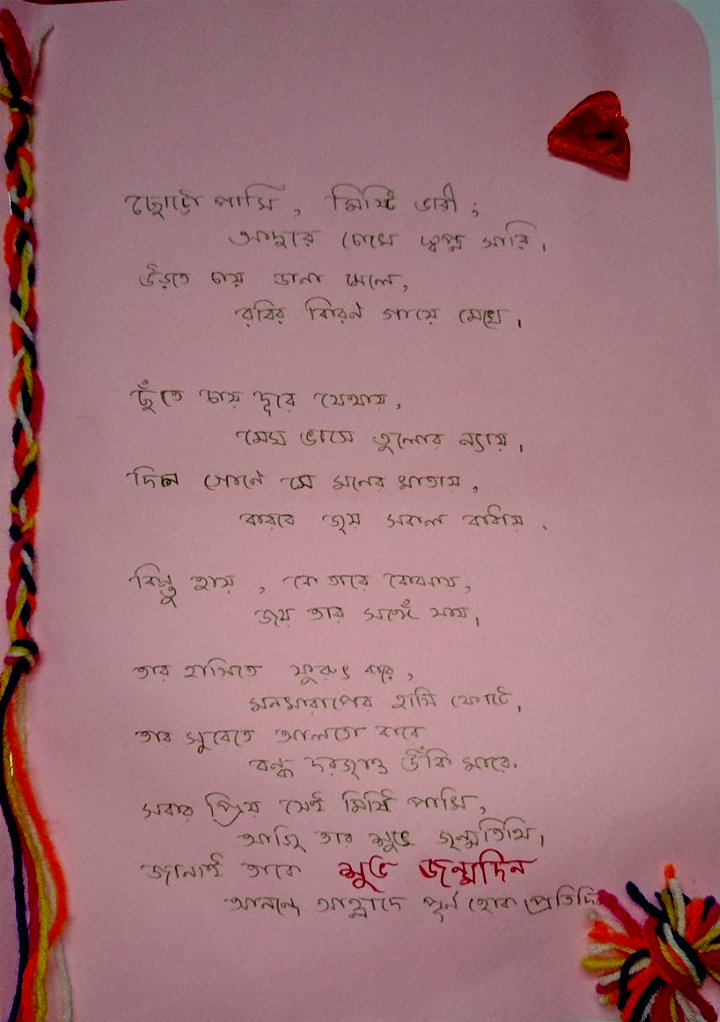 ছোট্টো পাখি, মিষ্টি ভারী;
আদুরে চোখে স্বপ্ন সারি।
উড়তে চায় ডানা মেলে,
রবির কিরণ গায়ে মেখে।
ছুঁতে চায় দূরে যেথায়,
মেঘ ভাসে তুলোর ন্যায়।
দিন গোনে সে মনের খাতায়,
করবে জয় সকল বাধায়।
কিন্তু হায়, কে তারে বোঝায়,
জয় তার সঙ্গেঁ যায়।
তার হাসিতে ফুরুৎ করে,
মনখারাপের হাসি ফোটে,
তার সুরেতে আলতো করে
বন্ধ দরজাও উঁকি মারে।
সবার প্রিয় সেই মিষ্টি পাখি,
আজি তার শুভ জন্মতিথি।
জানাই তারে শুভ জন্মদিন
আনন্দে আহ্লাদে পূর্ন হোক প্রতিদিন